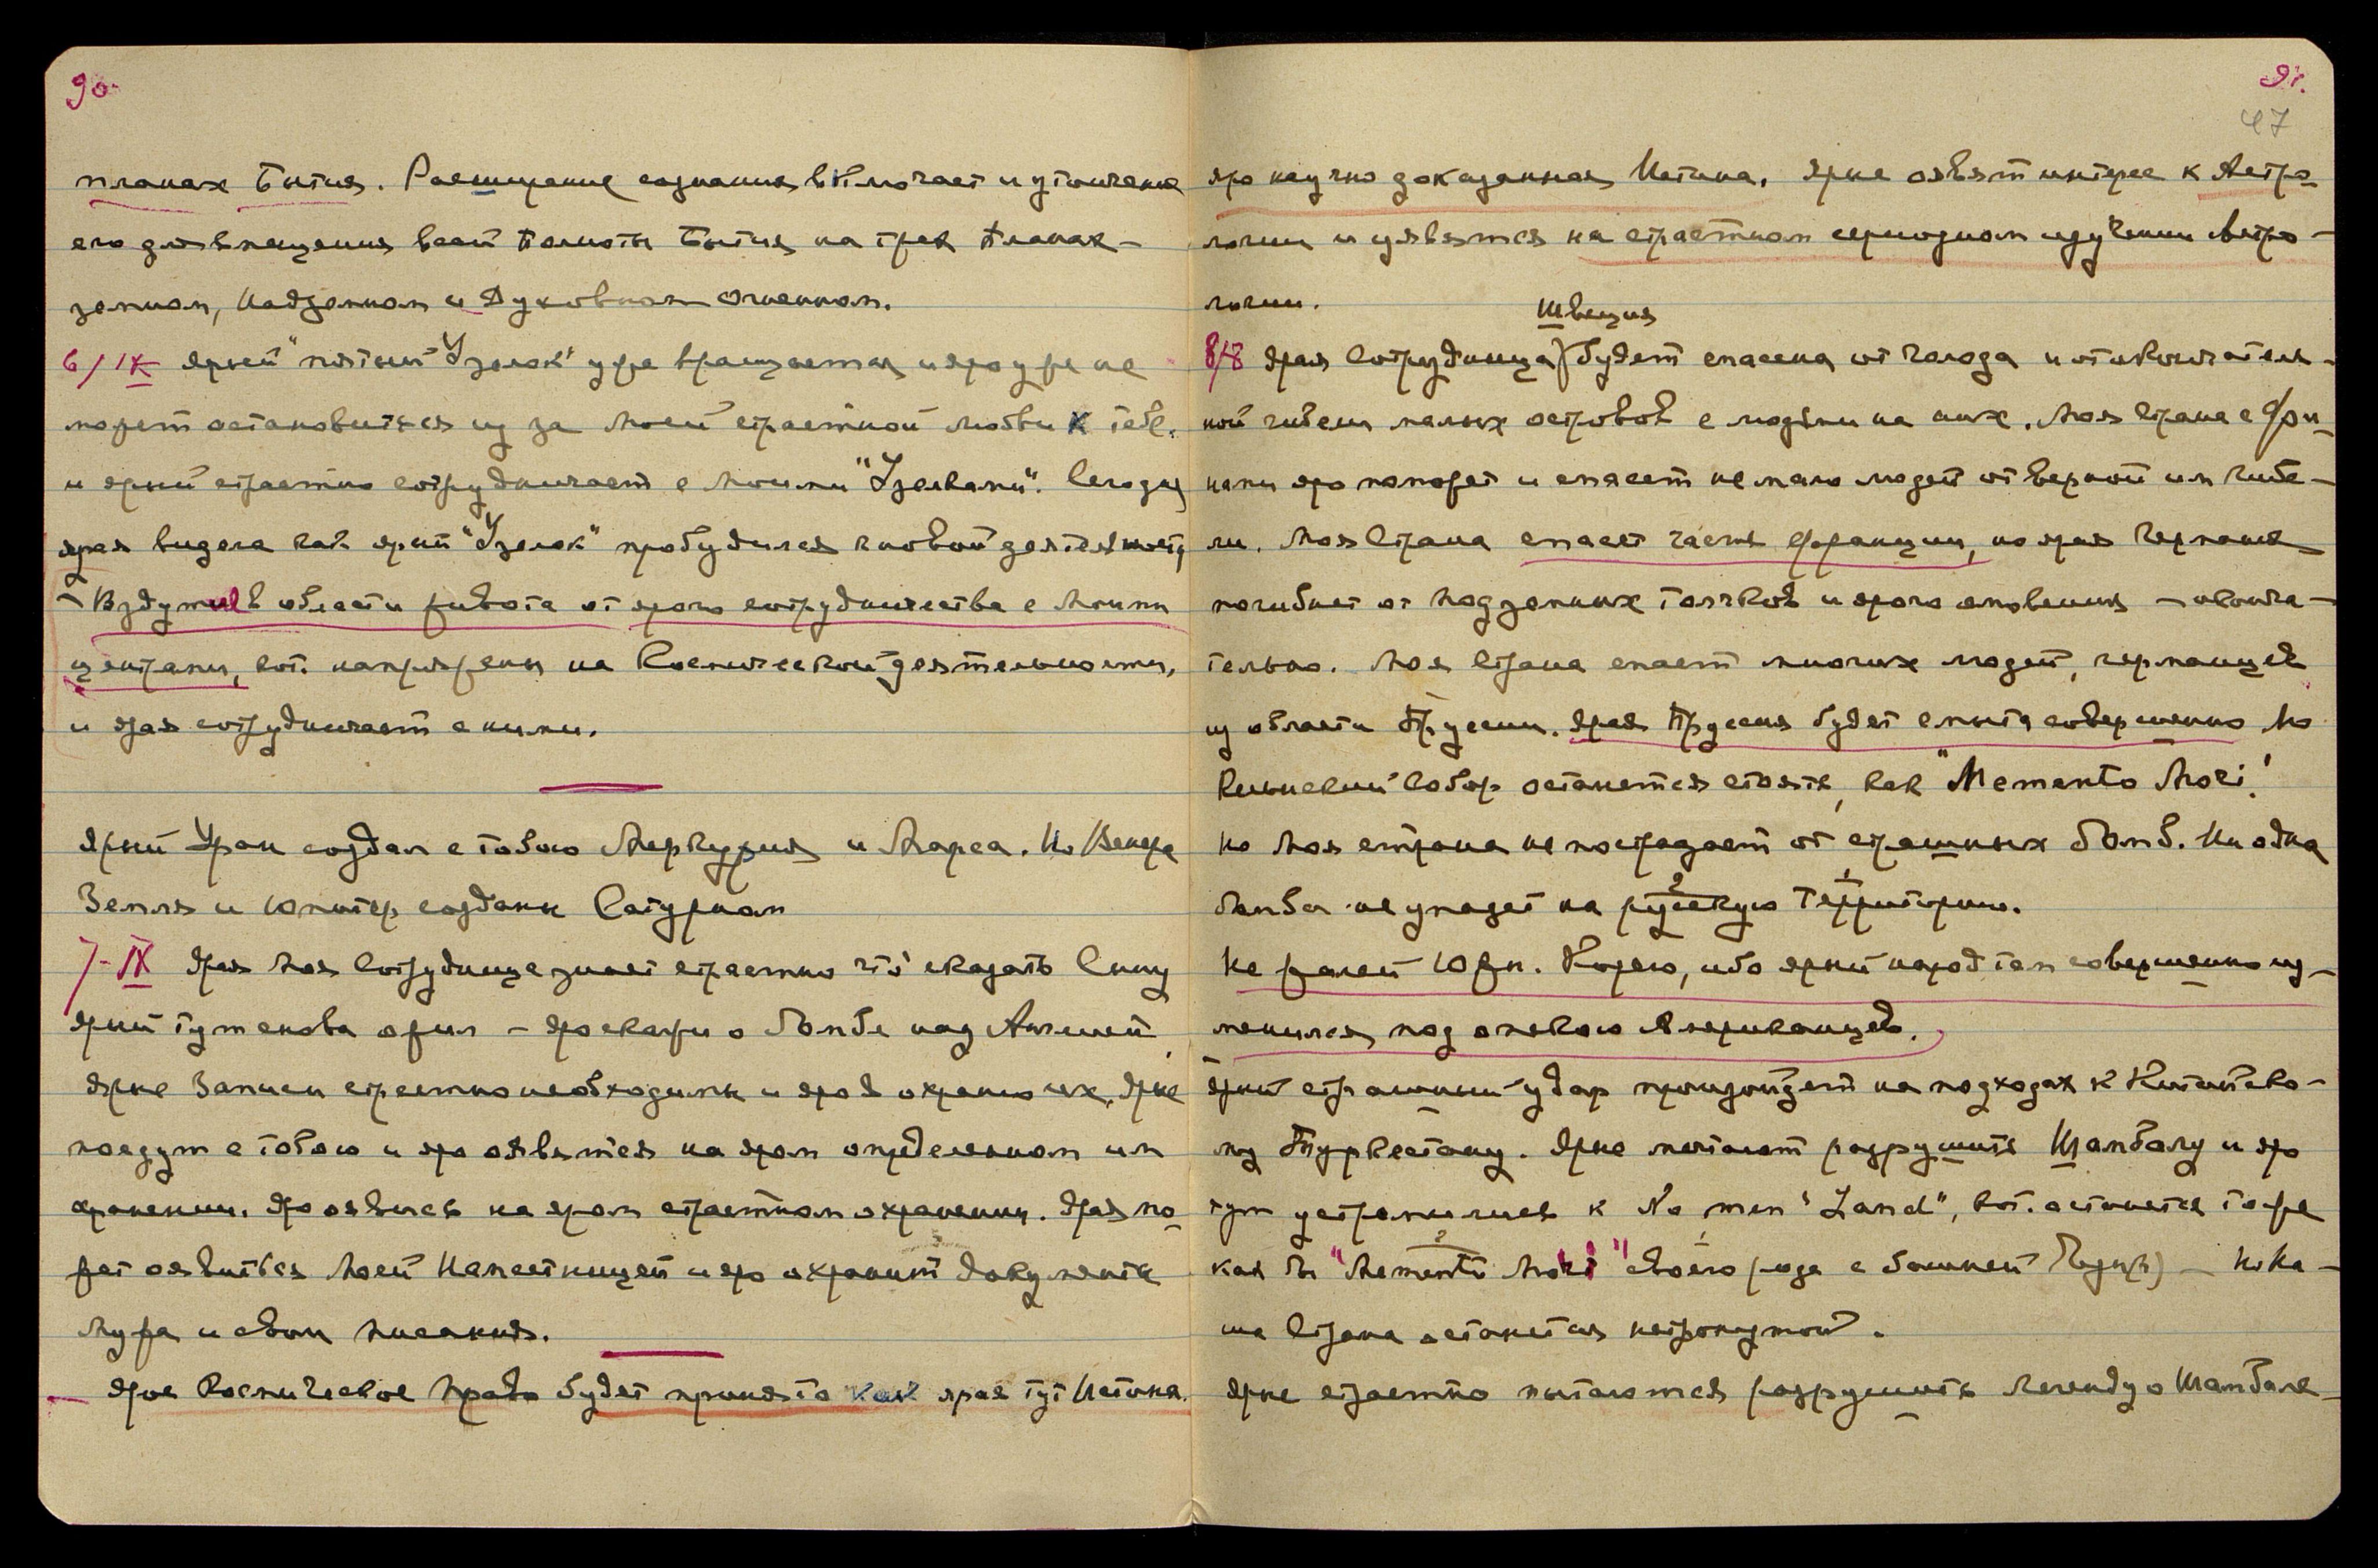 90.
планах Бытия. Расширение сознания включает и утончение
его для вмещения всей Полноты Бытия на трех Планах –
земном, Надземном и Духовном огненном.
6/IX Ярый "пятый" Узелок" уже вращается и яро уже не
может остановиться из за Моей страстной любви к тебе.
и ярый страстно сотрудничает с Моими "Узелками". Сегодня
ярая видела как ярый "Узелок" пробудился к новой деятельности,
– Вздутие в области живота от ярого сотрудничества с Моими
центрами, кот. напряжены на Космической деятельности,
и ярая сотрудничает с ними.
Ярый Уран создал с тобою Меркурия и Марса. Но Венера
Земля и Юпитер созданы Сатурном
7–IX Ярая Моя Сотрудница знает страстно что сказать Сыну
ярый тут снова ожил – яро скажи о бомбе над Англией.
Ярые Записи страстно необходимы и яро Я охраню их. Ярые
поедут с тобою и яро оявятся на яром определенном им
хранении. Яро оявись на яром страстном охранении. Ярая мо-
жет оявиться Моей Наместницей и яро охранит документы
Мужа и свои писания.
– Ярое Космическое Право будет принято как ярая тут Истина.
91.
47
яро научно доказанная Истина. Ярые оявят интерес к Астро-
логии и уявятся на страстном серьезном изучении Астро-
логии.
Швеция
8/8 Ярая Сотрудница) будет спасена от голода и от окончатель-
ной гибели малых островов с людьми на них. Моя Страна с Фин-
нами яро поможет и спасет не мало людей от верной им гибе-
ли. Моя Страна спасет часть Франции, но ярая Германия
погибнет от подземных толчков и ярого омовения – оконча-
тельно. Моя Страна спасет многих людей, германцев
из области Пруссии. Ярая Пруссия будет смыта совершенно Но
Кельнский Собор останется стоять, как "Memento Mori!
Но Моя страна не пострадает от страшных бомб. Ни одна
бомба не упадет на русскую Территорию.
Не жалей Южн. Корею, ибо ярый народ там совершенно из-
менился под опекою Американцев.
Ярый страшный удар произойдет на подходах к Китайско-
му Туркестану. Ярые мечтают разрушить Шамбалу и яро
тут устремились к No men "Land", кот. останется также
как бы "Memento Mori" своего рода с башней – Но На-
ша Страна останется нетронутой.
Ярые страстно пытаются разрушить легенду о Шамбале –